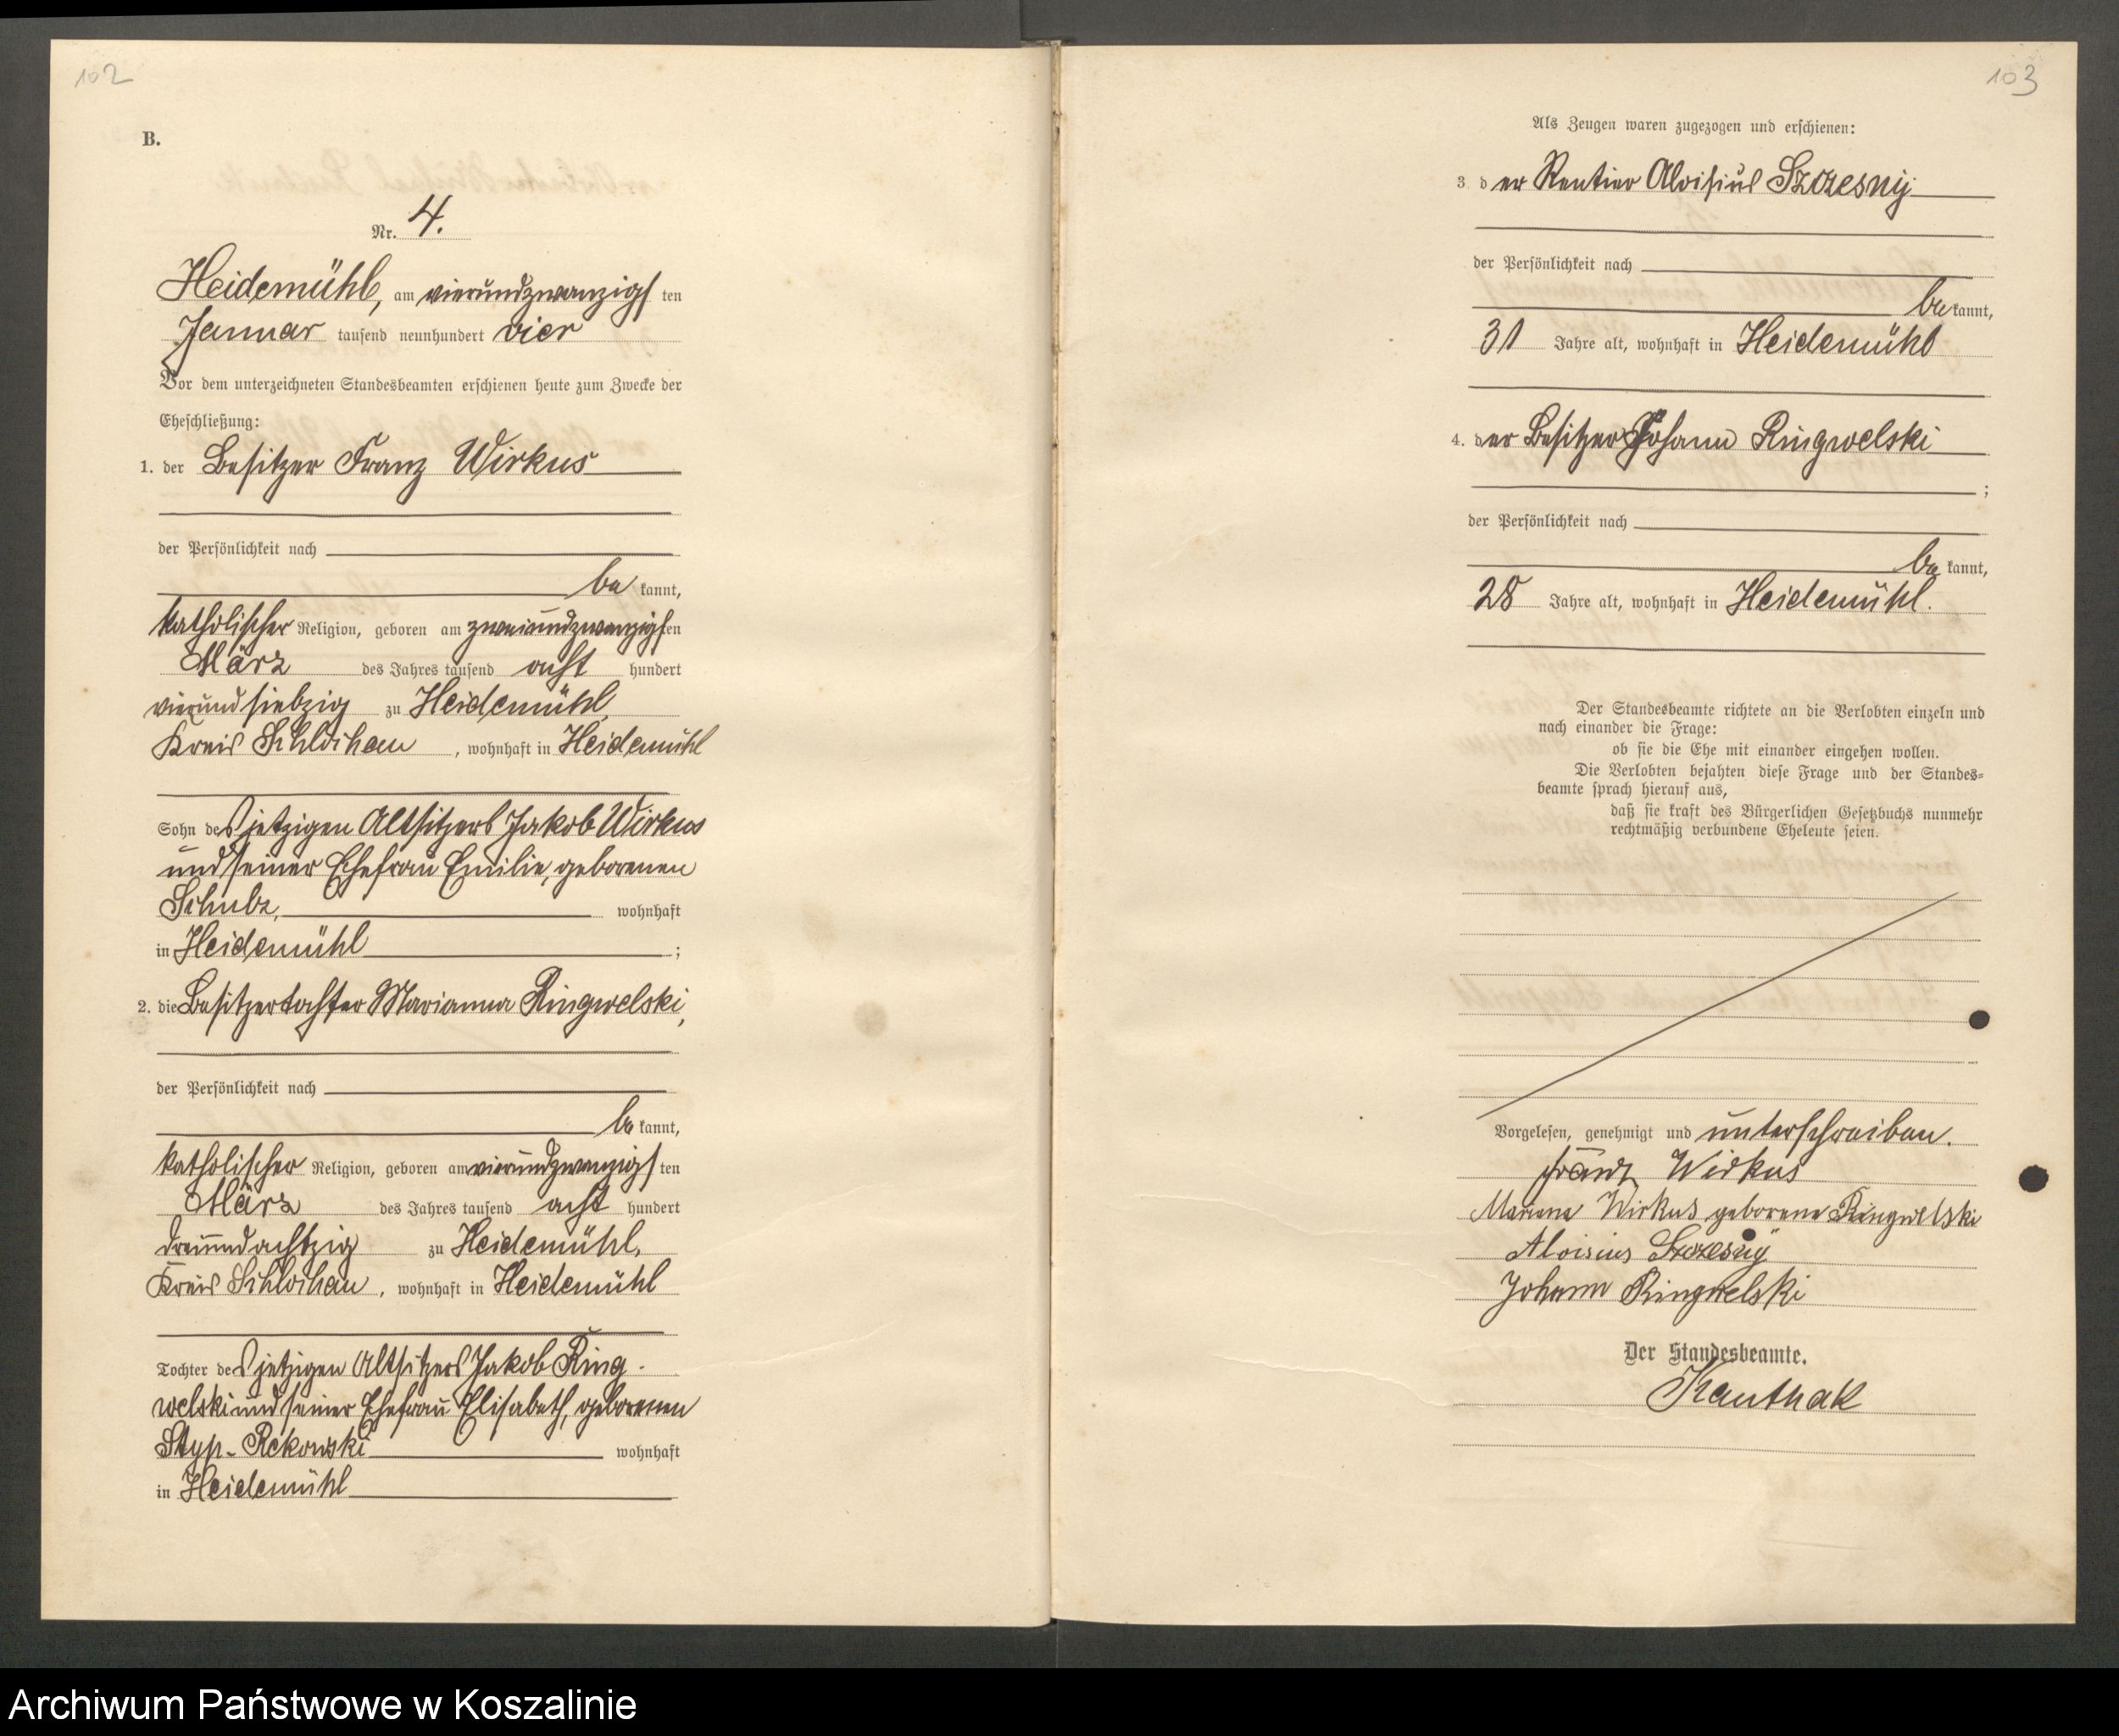 102
B.
Nr. 4.
Heidemühl, am vierundzwanzigsten
Januar tausend neunhundert vier
Vor dem unterzeichneten Standesbeamten erschienen heute zum Zwecke der
Eheschließung:
1. der Besitzer Franz Wirkus
der Persönlichkeit nach
bekannt,
katholischer Religion, geboren am zweiundzwanzigsten
März des Jahres tausend acht hundert
vierundsiebzig zu Heidemühl,
Kreis Schlochau, wohnhaft in Heidemühl
Sohn des jetzigen Altsitzers Jakob Wirkus
und seiner Ehefrau Emilie, geborenen
Schulz, wohnhaft
in Heidemühl;
2. die Besitzertochter Marianna Ringwelski,
der Persönlichkeit nach
bekannt,
katholischer Religion, geboren am vierundzwanzigsten
März des Jahres tausend acht hundert
dreiundachtzig zu Heidemühl,
Kreis Schlochau, wohnhaft in Heidemühl
Tochter des jetzigen Altsitzers Jakob Ring-
welski und seiner Ehefrau Elisabeth, geborenen
Styp-Rekowski wohnhaft
in Heidemühl
103
Als Zeugen waren zugezogen und erschienen:
3. der Rentier Aloisius Szczesny
der Persönlichkeit nach
bekannt,
31 Jahre alt, wohnhaft in Heidemühl
4. der Besitzer Johann Ringwelski
;
der Persönlichkeit nach
bekannt,
28 Jahre alt, wohnhaft in Heidemühl.
Der Standesbeamte richtete an die Verlobten einzeln und
nach einander die Frage:
ob sie die Ehe mit einander eingehen wollen.
Die Verlobten bejahten diese Frage und der Standes-
beamte sprach hierauf aus,
daß sie kraft des Bürgerlichen Gesetzbuchs nunmehr
rechtmäßig verbundene Eheleute seien.
Vorgelesen, genehmigt und unterschreiben.
Franz Wirkus
Mariana Wirkus geborene Ringwelski
Aloisius Szczesny
Johann Ringwelski
Der Standesbeamte.
Kauthak
Archiwum Państwowe w Koszalinie